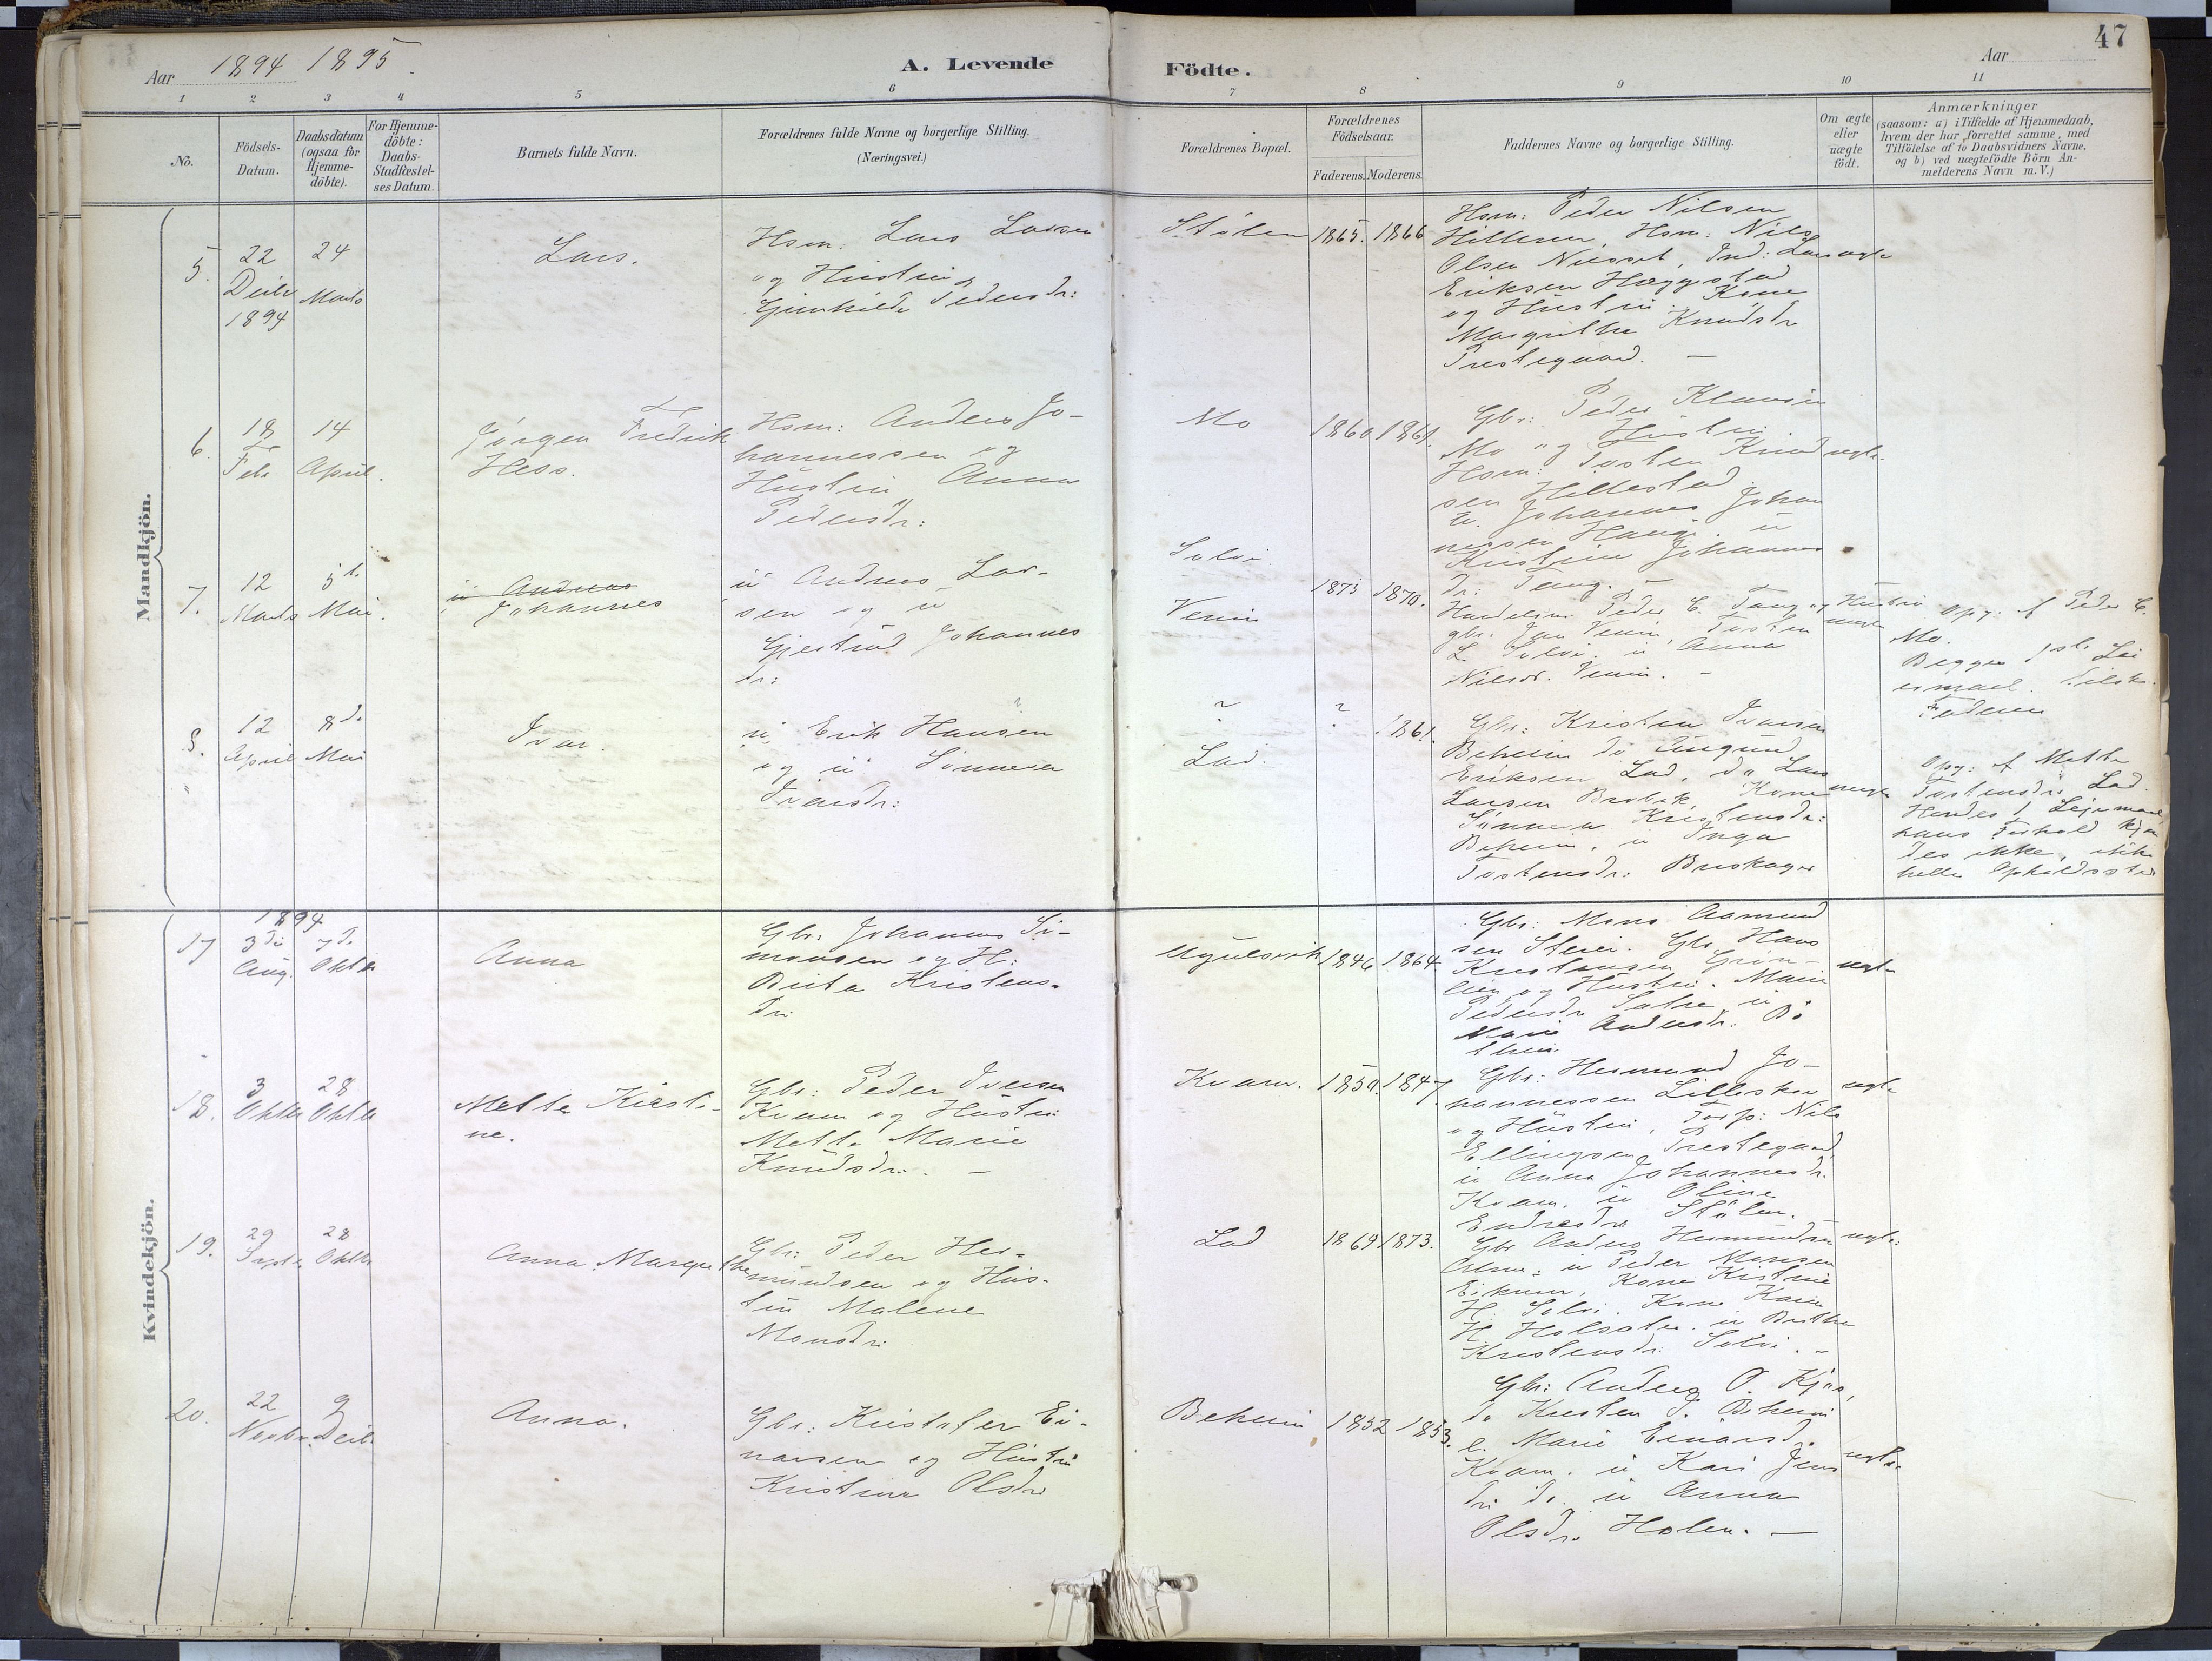 47
Aar 1894 1895.
A. Levende Födte.
Aar
1 2 3 4 5 6 7 8 9 10 11
No.
Födsels-Datum.
Daabsdatum (ogsaa for Hjemme-döbte).
For Hjemme-döbte: Daabs-Stadfæstel-ses Datum.
Barnets fulde Navn.
Forældrenes fulde Navne og borgerlige Stilling.
(Næringsvei.)
Forældrenes Bopæl.
Forældrenes Födselsaar.
Faderens. Moderens.
Faddernes Navne og borgerlige Stilling.
Om ægte eller uægte födt.
Anmærkninger
(saasom: a) i Tilfælde af Hjemmedaab,
hvem der har forrettet samme, med
Tilföielse af to Daabsvidners Navne.
og b) ved uægtefödte Börn An-
melderens Navn m. V.)
Mandkjön.
5.
22
1894
24
Marts
Lars.
Hsm: Lars Larsen
og Hustru
Gunhilde Pedersdr:
Stølen
1865. 1866
Hsm: Peder Nilsen
Hsm: Nils
Olsen
Eriksen Hæggestad
og Hustru. Kone
Margrethe Knudsdr
Prestegaard. —
6.
18
Feb
14
April.
Jørgen Fredrik
Hess.
Hsm: Anders Jo-
hannessen og
Hustru Anna
Pedersdr:
Mo
1860. 1861.
Gbr: Peder Klausen
Mo og Hustru
Hsm: Tosten Knud
sen Hillestad
u. Johannes Johan
nessen Haugi. u
Kristine Johannes
dr: Tang. —
ægte
7.
12
Marts
5te
Mai.
u Andreas
Johannes
u Andreas Lar-
sen og u
Gjertrud Johannes
dr:
Solvi.
Venin
1873 1870.
Peder C. Tang og Hustru
gbr: Jan Venin, Tosten
L. Solvi. u Anna
Nilsdr. Venin. —
Opg: af Peder C.
Mo.
Begges 1ste Lei
ermaal.
Faderen
8.
12
April
8de
Mai
Ivar.
u, Erik Hansen
og u Sønneva
Ivarsdr:
?
Lad.
?
1861.
Gbr: Kristen Ivarsen
Behein do
Eriksen Lad, do Lars
Larsen Kone
Sønneva Kristensdr:
Behein, u Inga
Tostensdr:
Opg: af Mette
Tostensdr: Lad.
Hendes 1 Leiermaal,
hans Forhold kjen
des ikke,
heller Opholdssted
Kvindekjön.
17
1894
3die
Aug.
7de
Oktb
Anna
Gbr: Johannes Si-
monsen og H:
Brita Kristens-
dr:
1846 1864.
Gbr: Mons Aamund
sen Gbr Hans
Kristensen Grøn-
lien og Hustru. Marie
Pedersdr u
Marie Andersdr:
18.
3
Oktb
28
Oktb
Mette Kirsti-
ne.
Gbr: Peder Iversen
Kvam og Hustru
Mette Marie
Knudsdr. —
Kvam.
1850. 1847.
Gbr: Hermund Jo-
hannessen
og Hustru, Nils
Ellingsen Prestegaard,
u Anna Johannesdr.
Kvam. u Oline
Endresdr: Stølen.
ægte
19.
29
Septb
28
Oktb
Anna Margrethe
Gbr: Peder Her-
mundsen og Hus-
tru Malene
Monsdr:
Lad
1869 1873.
Gbr Anders Hermundsen
u Peder Monsen
Kone Kristine
H. Solvi. Kone Kari
H. Holsater. u Brithe
Kristensdr: Solvi. —
ægte
20.
22
Novbr.
9
Anna.
Gbr: Kristofer Ei-
narsen og Hustru
Kristine Olsdr
Behein
1852 1853.
Gbr: Anders O.
do Kristen J. Behein
e. Marie Einarsd.
Kvam. u Kari Jens
dr: do. u Anna
Olsdr. Holen. —
ægte